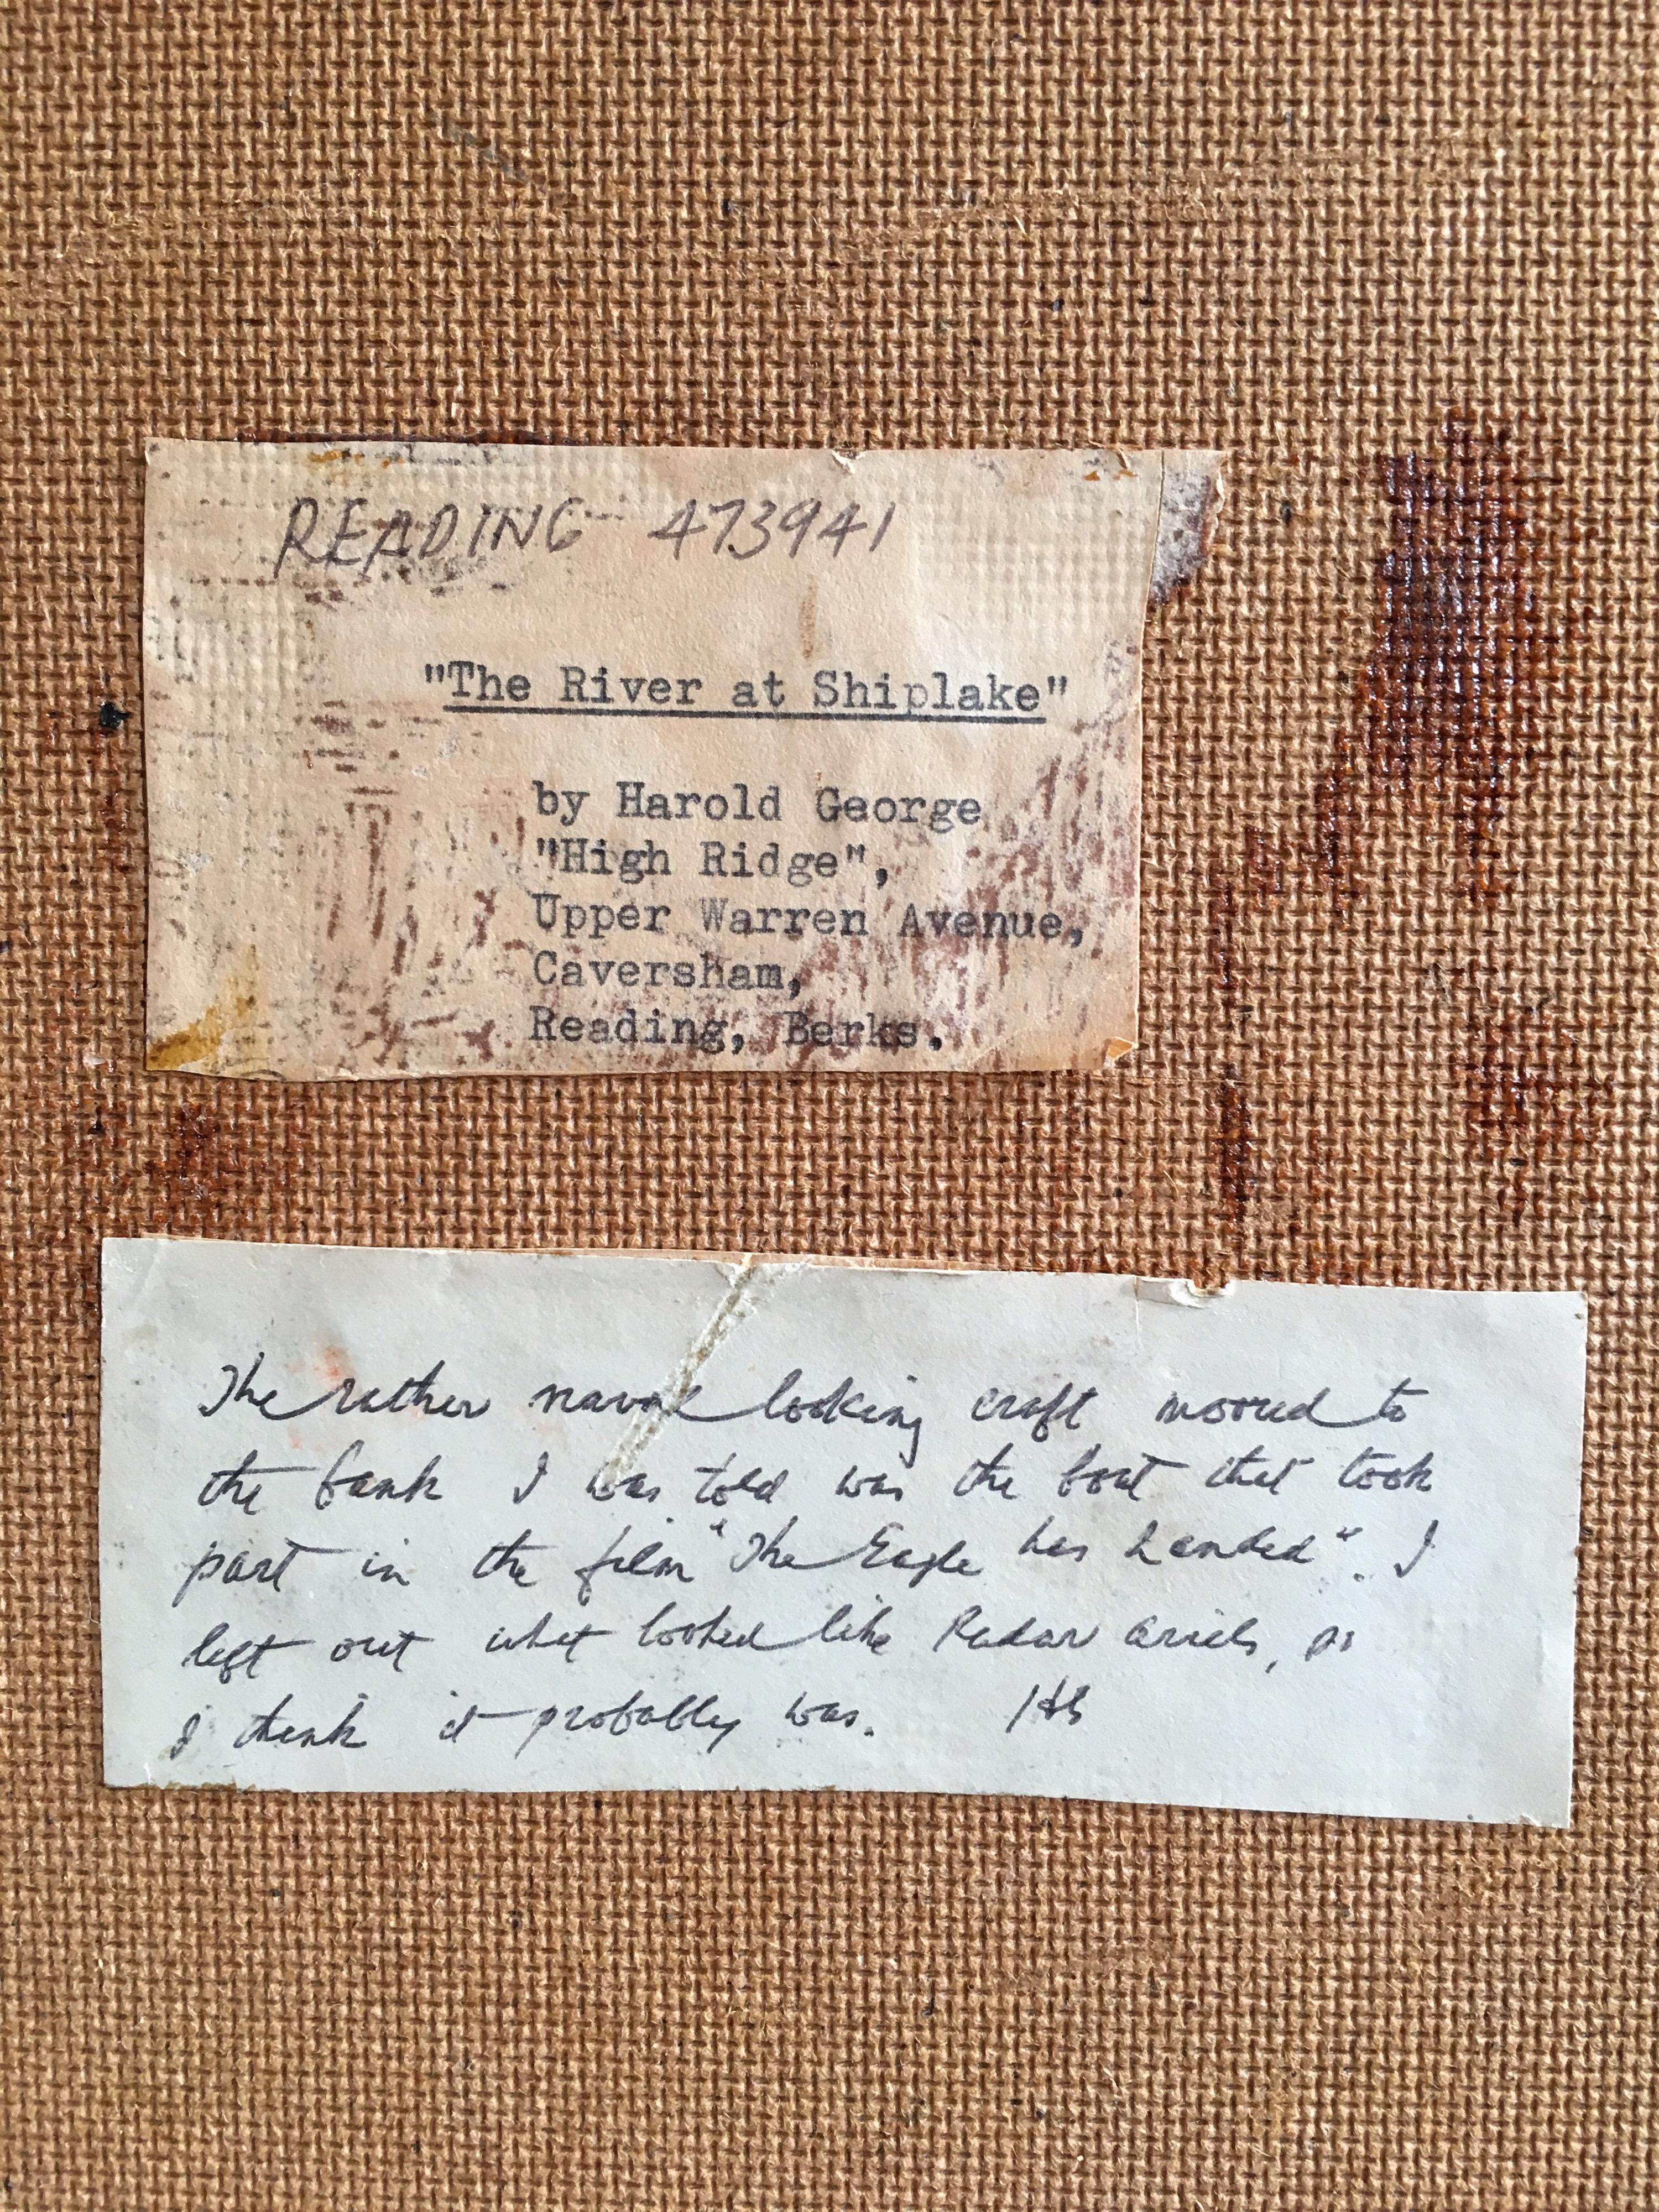 READING 473941
"The River at Shiplake"
by Harold George
"High Ridge",
Upper Warren Avenue,
Caversham,
Reading, Berks.
The rather naval looking craft moored to
the bank I was told was the boat that took
part in the film "The Eagle has Landed". I
left out what looked like Radar ariels, as
I think it probably was. HG